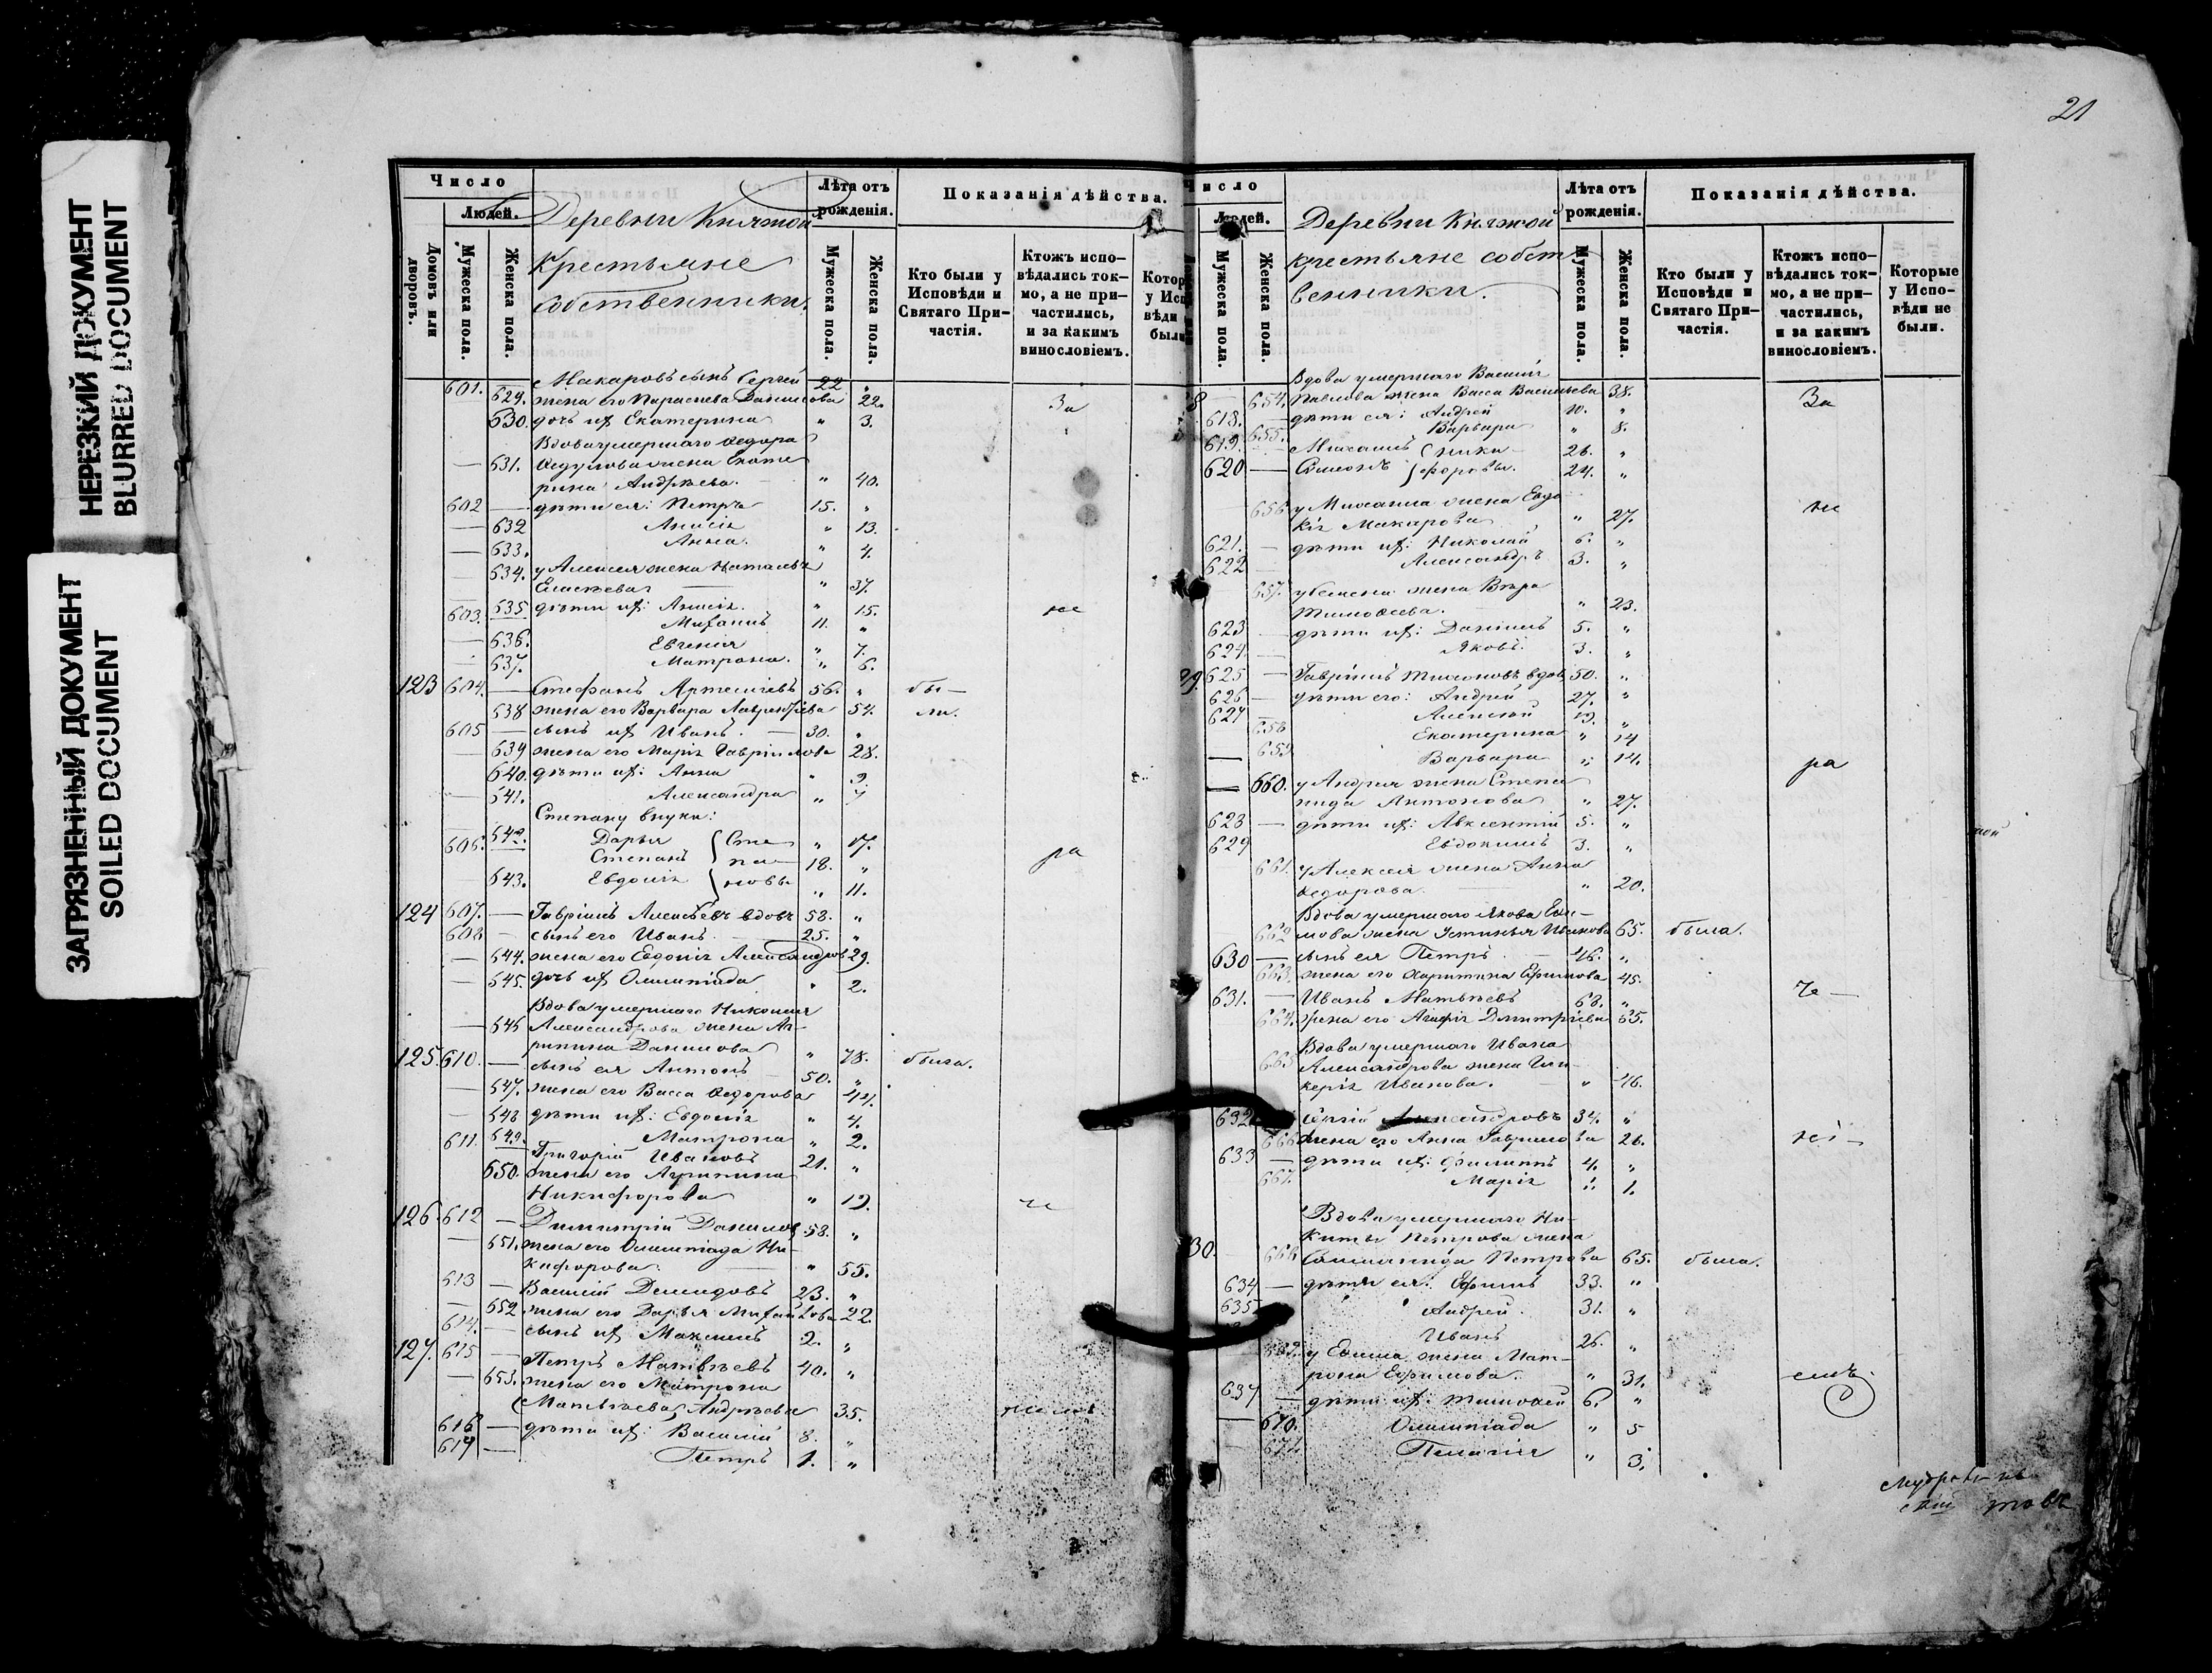 НЕРЕЗКИЙ ДОКУМЕНТ
BLURRED DOCUMENT
ЗАГРЯЗНЕННЫЙ ДОКУМЕНТ
SOILED DOCUMENT
21
Число
Людей.
Домовъ или дворовъ.
Мужеска пола.
Женска пола.
Деревни Княжой
Крестьяне
собственники.
Лѣта отъ рожденія.
Мужеска пола.
Женска пола.
Показанія дѣйства.
Кто были у Исповѣди и Святаго Причастія.
Ктожъ исповѣдались токмо, а не причастились, и за какимъ винословіемъ.
601. Макаровъ сынъ Сергей 22 "
629. жена его Параскева Данилова 22.
За
630. дочь их Екатерина " 3.
Вдова умершаго Ѳедора
631. жена Екате
рина Андреева. " 40.
602 — дѣти ея: Петръ 15. "
— 632 Анисія " 13.
— 633. Анна. " 4.
— 634. у Алексея жена Наталья
" 37.
— 635 дѣти их: Анисія. " 15.
не
603. Михаилъ 11. "
— 636. Евгенія " 7.
— 637. Матрона. " 6.
123 604. — Стефанъ Артемьевъ 56. " бы-
638 жена его Варвара Лаврентіева 54. ли.
605 — сынъ их Иванъ. 30. "
— 639 жена его Марія Гаврилова 28.
640. дѣти их: Анна "
— 641. Александра " 7
Степану внуки:
642. Дарья " 17.
606. Степанъ 18. "
Сте
па
новы
ра
643. Евдокія " 11.
124 607. — Гавріилъ Алексѣевъ вдовъ 58. "
608 — сынъ его Иванъ 25. "
— 644. жена его Евдокія Александрова 29.
— 645. дочь их Олимпіада " 2.
Вдова умершаго
— 646 Александрова жена Аг-
рипина Данилова " 78. была.
125. 610. — сынъ ея Антонъ 50. "
— 647. жена его Васса Ѳедорова 44.
— 648 дѣти их: Евдокія " 4.
649. Матрона " 2.
611. Григорій Ивановъ 21. "
650. жена его Агрипина
Никифорова " 19.
че
126. 612 — Димитрій Данилов 58. "
— 651. жена его Олимпіада Ни-
кифорова. " 55.
613 — Василій Демидовъ 23. "
— 652. жена его Дарья Михайлова 22.
614. — сынъ их Максимъ 2. "
127. 615 — Петръ Матвѣевъ 40. "
— 653. жена его Матрона
Андреева 35.
616 — дѣти их: Василій 8. "
617 — Петръ 1. "
Число
Людей.
Мужеска пола.
Женска пола.
Деревни Княжой
крестьяне собст
венники.
Лѣта отъ рожденія.
Мужеска пола.
Женска пола.
Показанія дѣйства.
Кто были у Исповѣди и Святаго Причастія.
Ктожъ исповѣдались токмо, а не причастились, и за какимъ винословіемъ.
Которые у Исповѣди не были.
Вдова умершаго Василія
654. Павлова жена Васса Васильева 38.
За
618. — дѣти ея: Андрей 10. "
655. Варвара " 8.
619. — Михаилъ 26. "
620 — Симеонъ 24. "
ники
форовы.
656 у Михаила жена Евдо
кія Макарова " 27.
не
621. — дѣти их: Николай 6. "
622 Александръ 3. "
657. у Семена жена Вѣра
Тимоѳеева. " 23.
623 — дѣти их: Даніилъ 5. "
624 — Яковъ. 3. "
29. 625 — Гавріилъ вдов. 50. "
626 — дѣти его: Андрей 27. "
627 Алексѣй 19. "
658 Екатерина " 14
659. Варвара " 14.
ра
— 660. у Андрея жена Степа
нида Антонова " 27.
628 — дѣти их: Авксентій 5. "
629 Евдокимъ 3. "
661. у Алексея жена Анна
Ѳедорова. " 20.
Вдова умершаго Якова
662 жена Устинья Иванова 65. была.
630 — сынъ ея Петръ 46. "
663. жена его Харитина Ефимова 45.
631. — Иванъ Матвѣевъ 68. "
че —
664. жена его Агафія Дмитріева 65.
Вдова умершаго Ивана
665 Александрова жена Гли-
керія Иванова. " 46.
632 Сергій Александровъ 34. "
666 жена его Анна Гаврилова 26.
633 — дѣти их: Филиппъ 4. "
667. Марія " 1.
Вдова умершаго Ни-
киты Петрова жена
30. 668 Соломонида Петрова 65. была.
634 — дѣти ея: Ефимъ 33. "
635 Андрей. 31. "
Иванъ 26. "
669. у Ефима жена Мат-
рона Ефимова. " 31.
емъ.
637 — дѣти их: Тимоѳей 6. "
— 670. Олимпіада " 5
671. Пелагія " 3.